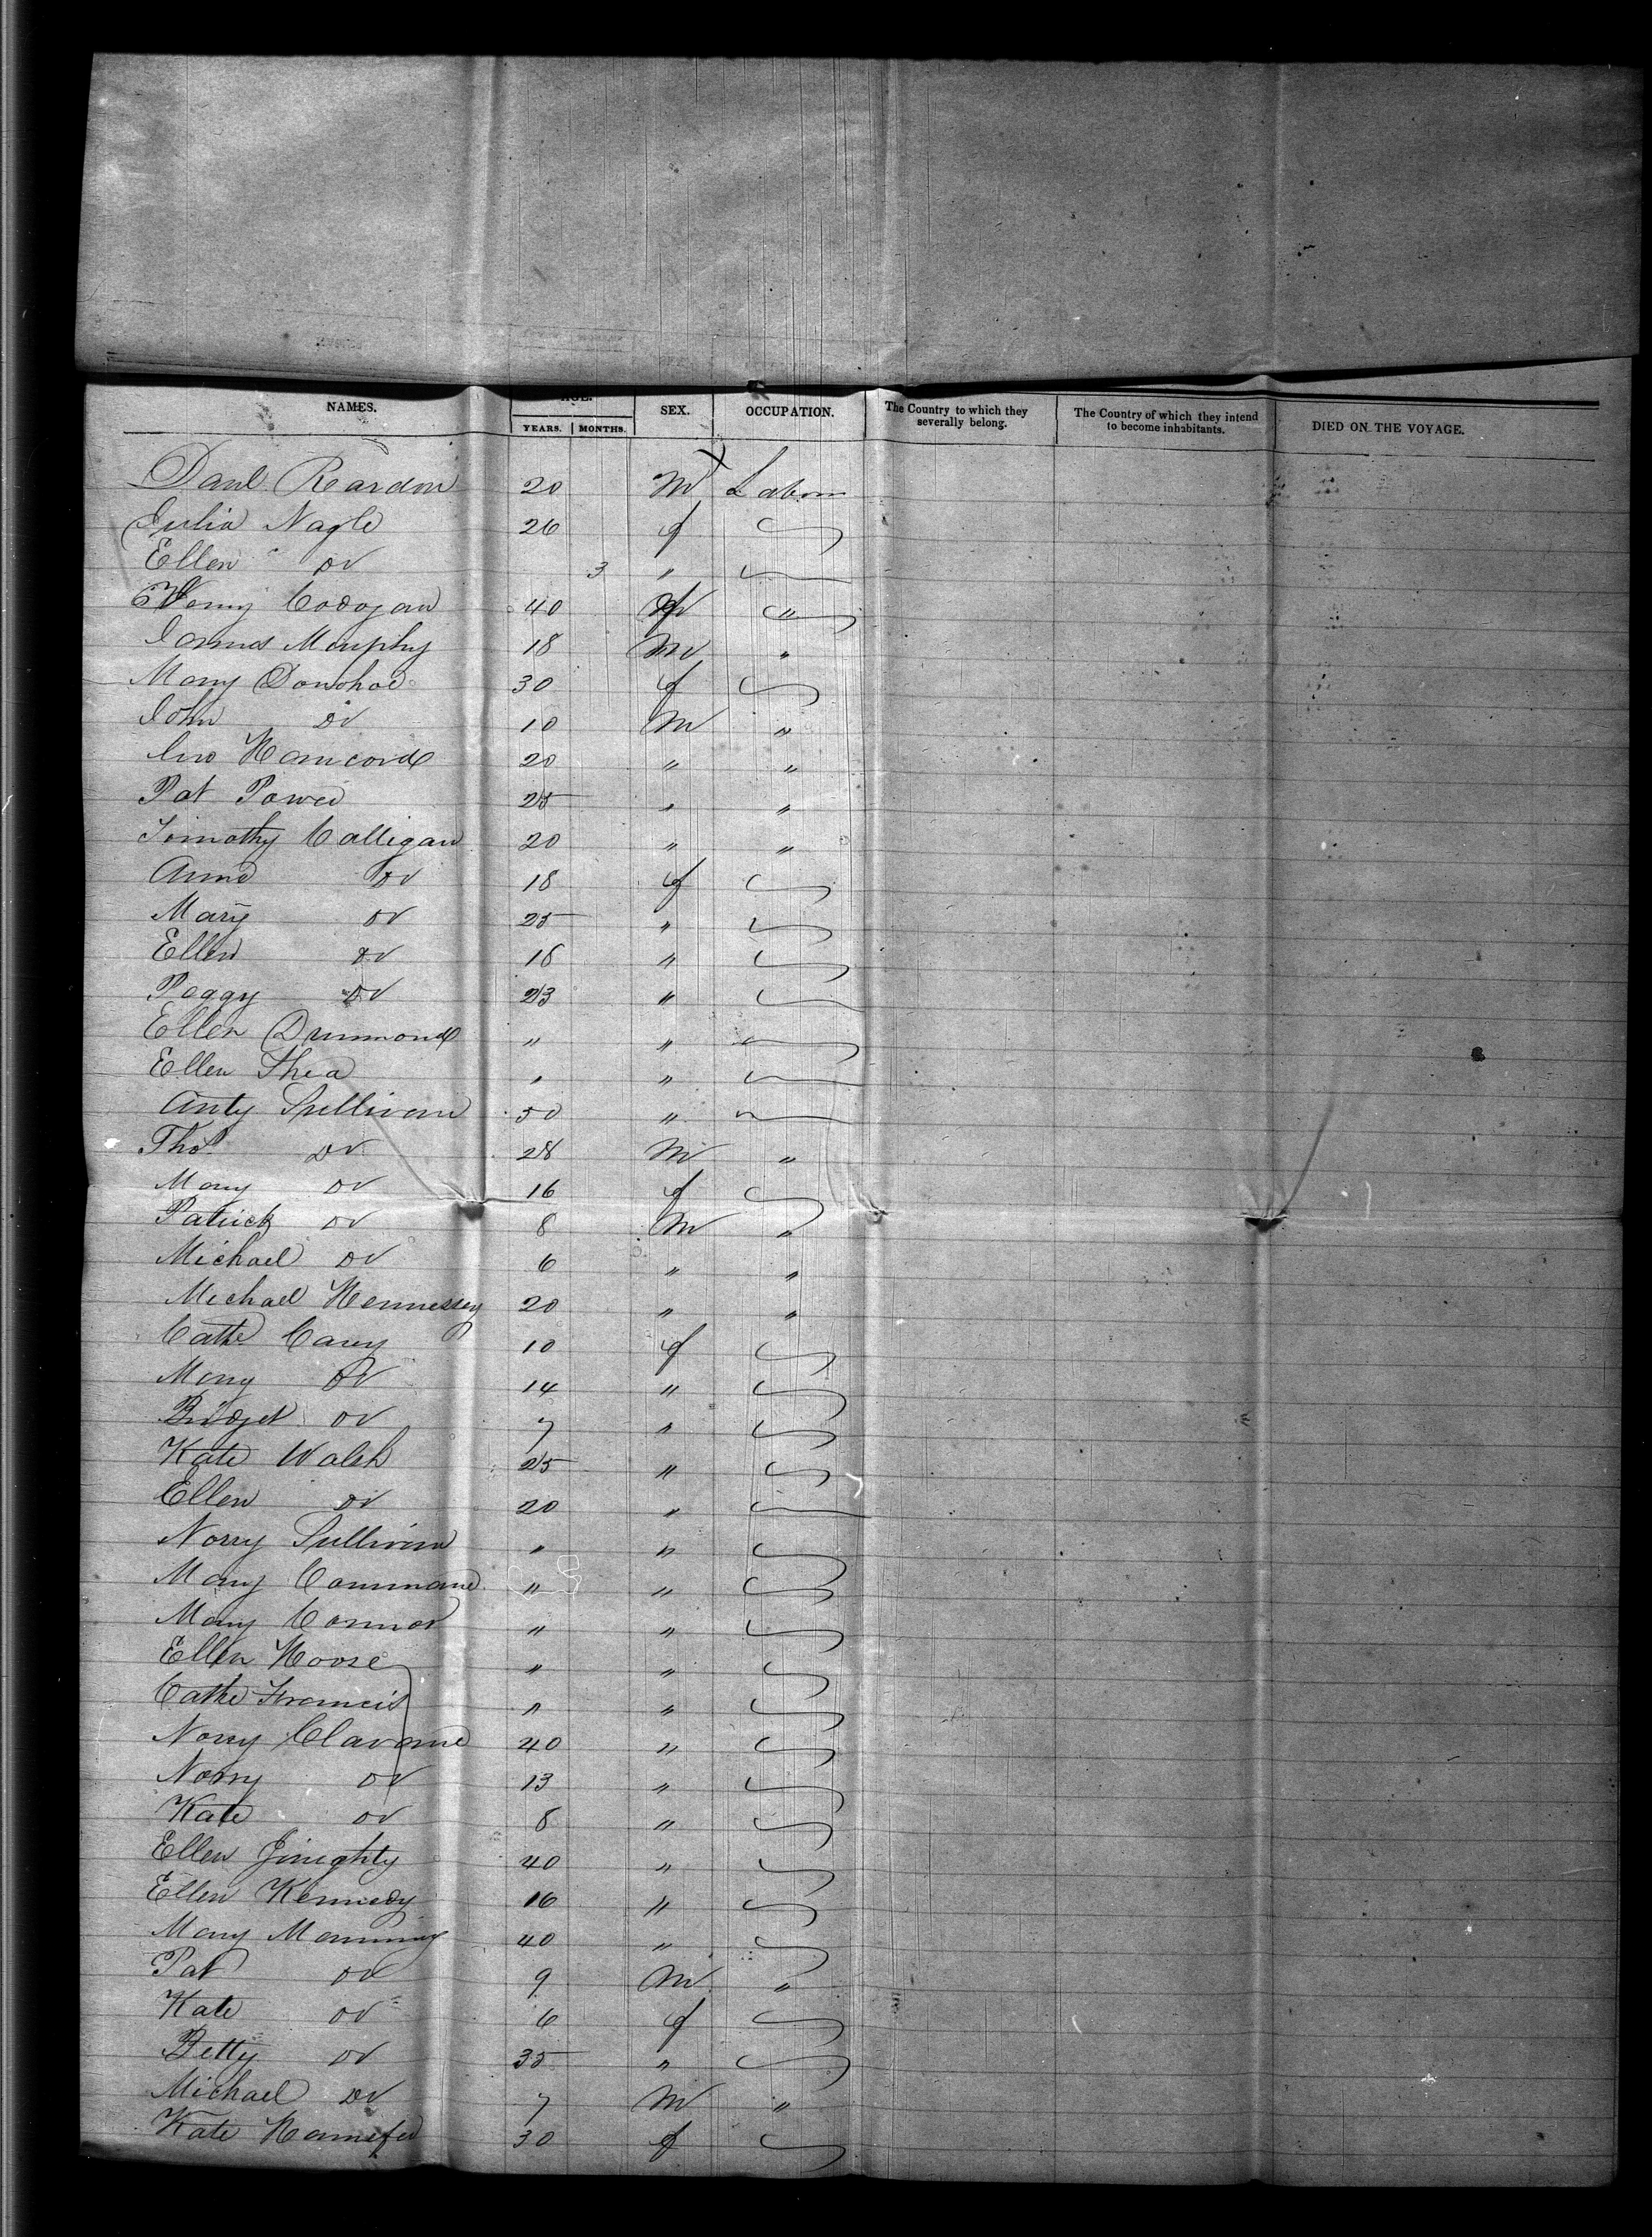 NAMES. AGE. SEX. OCCUPATION. The Country to which they severally belong. The Country of which they intend to become inhabitants. DIED ON THE VOYAGE.
YEARS. MONTHS.
Danl Reardon 20 M Labour
Julia Nagle 26 f
Ellen Do 3 "
Cadogan 40 "
James Murphy 18 M "
Mary Donohoe 30 f
John Do 10 M "
20 " "
Pat Power 25 " "
Timothy Calligan 20 " "
Anne Do 18 f
Mary Do 25 "
Ellen Do 16 "
Peggy Do 23 "
Ellen Drummond " "
Ellen Shea " "
Anty Sullivan 50 "
Thos Do 28 M "
Mary Do 16 f
Patrick Do 8 M "
Michael Do 6 " "
Michael Hennessey 20 " "
Cathe Carey 10 f
Mary Do 14 "
Bridget Do 7 "
Kate Walsh 25 "
Ellen Do 20 "
Norry Sullivan " "
Mary Commane " "
Mary Connor " "
Ellen " "
Cathe Francis " "
Norry Clavane 40 "
Norry Do 13 "
Kate Do 8 "
Ellen 40 "
Ellen Kennedy 16 "
Mary Manning 40 "
Pat Do 9 M "
Kate Do 6 f
Betty Do 35 "
Michael Do 7 M "
Kate 30 f